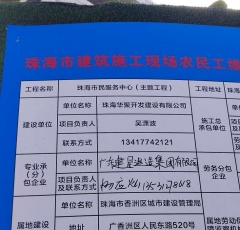 珠海市建筑施工现场农民工
工程名称 珠海市民服务中心（主题工程）
建设单位 单位名称 珠海华聚开发建设有限公司 施工总承包单位
项目负责人 吴漂波
联系方式 13417742121
专业承（分）包企业 单位名称 广东建星建造集团有限公司 劳务分包企业
项目负责人及联系方式
属地建设 珠海市香洲区城市建设管理局 属地劳动
广香洲区人民东路520号